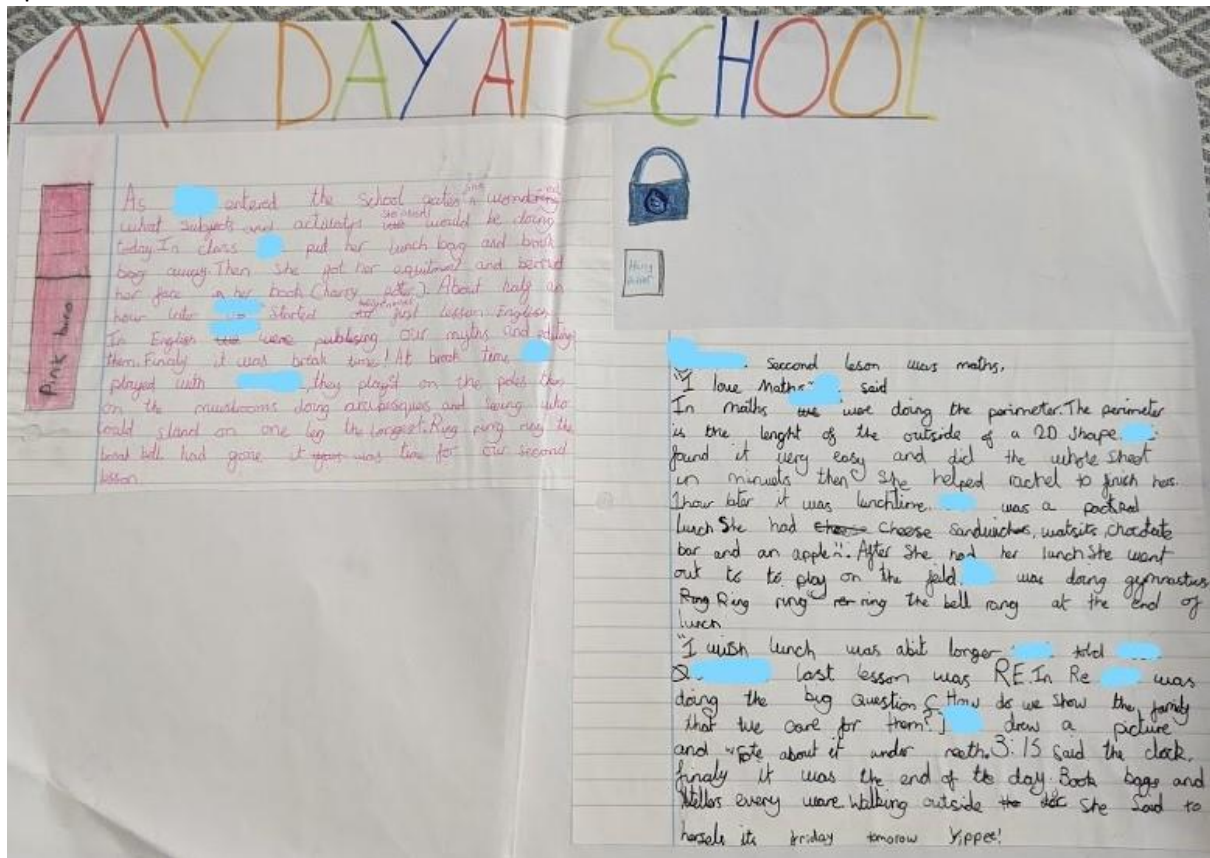 MY DAY AT SCHOOL
Pink biro
As entered the school gates she wondering
what subjects and activatys she would be doing
today. In class put her lunch bag and book
bag away. Then she got her equitment and
her face in her book (harry potter). About half an
hour later started first lesson English.
In English were publising our myths and editing
them. Finaly it was break time! At break time
played with , they playst on the poles then
on the mushrooms doing and seing who
could stand on one leg the longest. Ring ring ring the
bell had gone it was time for our second
lesson
Harry potter
Seccond leson was maths,
"I love Maths" said
In maths we were doing the perimeter. The perimeter
is the lenght of the outside of a 2D shape.
found it very easy and did the whole sheet
in minuets then she helped rachel to finich hers.
1hour later it was lunchtime. was a packed
lunch She had Cheese sandwiches, watsits, chocolate
bar and an apple". After she had her lunch she went
out to to play on the feild. was doing gymnastics
Ring Ring ring ring The bell rang at the end of
lunch
"I wish lunch was abit longer told
last lesson was RE. In Re was
doing the big Question (How do we show the family
that we care for them?) drew a picture
and wrote about it under neeth. 3:15 said the clock.
finaly it was the end of the day. Book bags and
every were walking outside she said to
herself its friday tomorow Yippee!